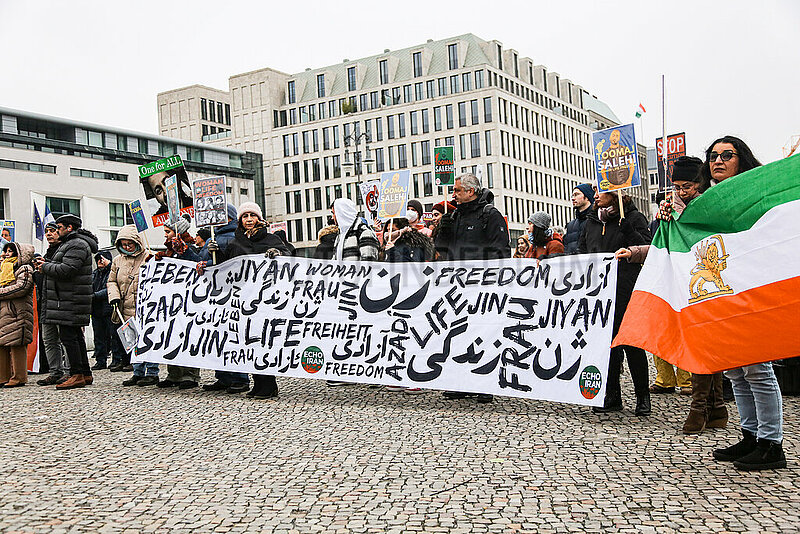 One for All
WOMAN
TOOMAJ
SALEHI
TOOMAJ
SALEHI
STOP
LEBEN
JIYAN
WOMAN
FRAU
زن
FREEDOM
آزادی
ژیان
LEBEN
زندگی
JIN
LIFE
JIN
JIYAN
AZADI
آزادی
JIN
LIFE
FREIHEIT
آزادی
AZADI
زندگی
FRAU
ژن
FRAU
ئازادی
FREEDOM
ECHO
IRAN
ECHO
IRAN